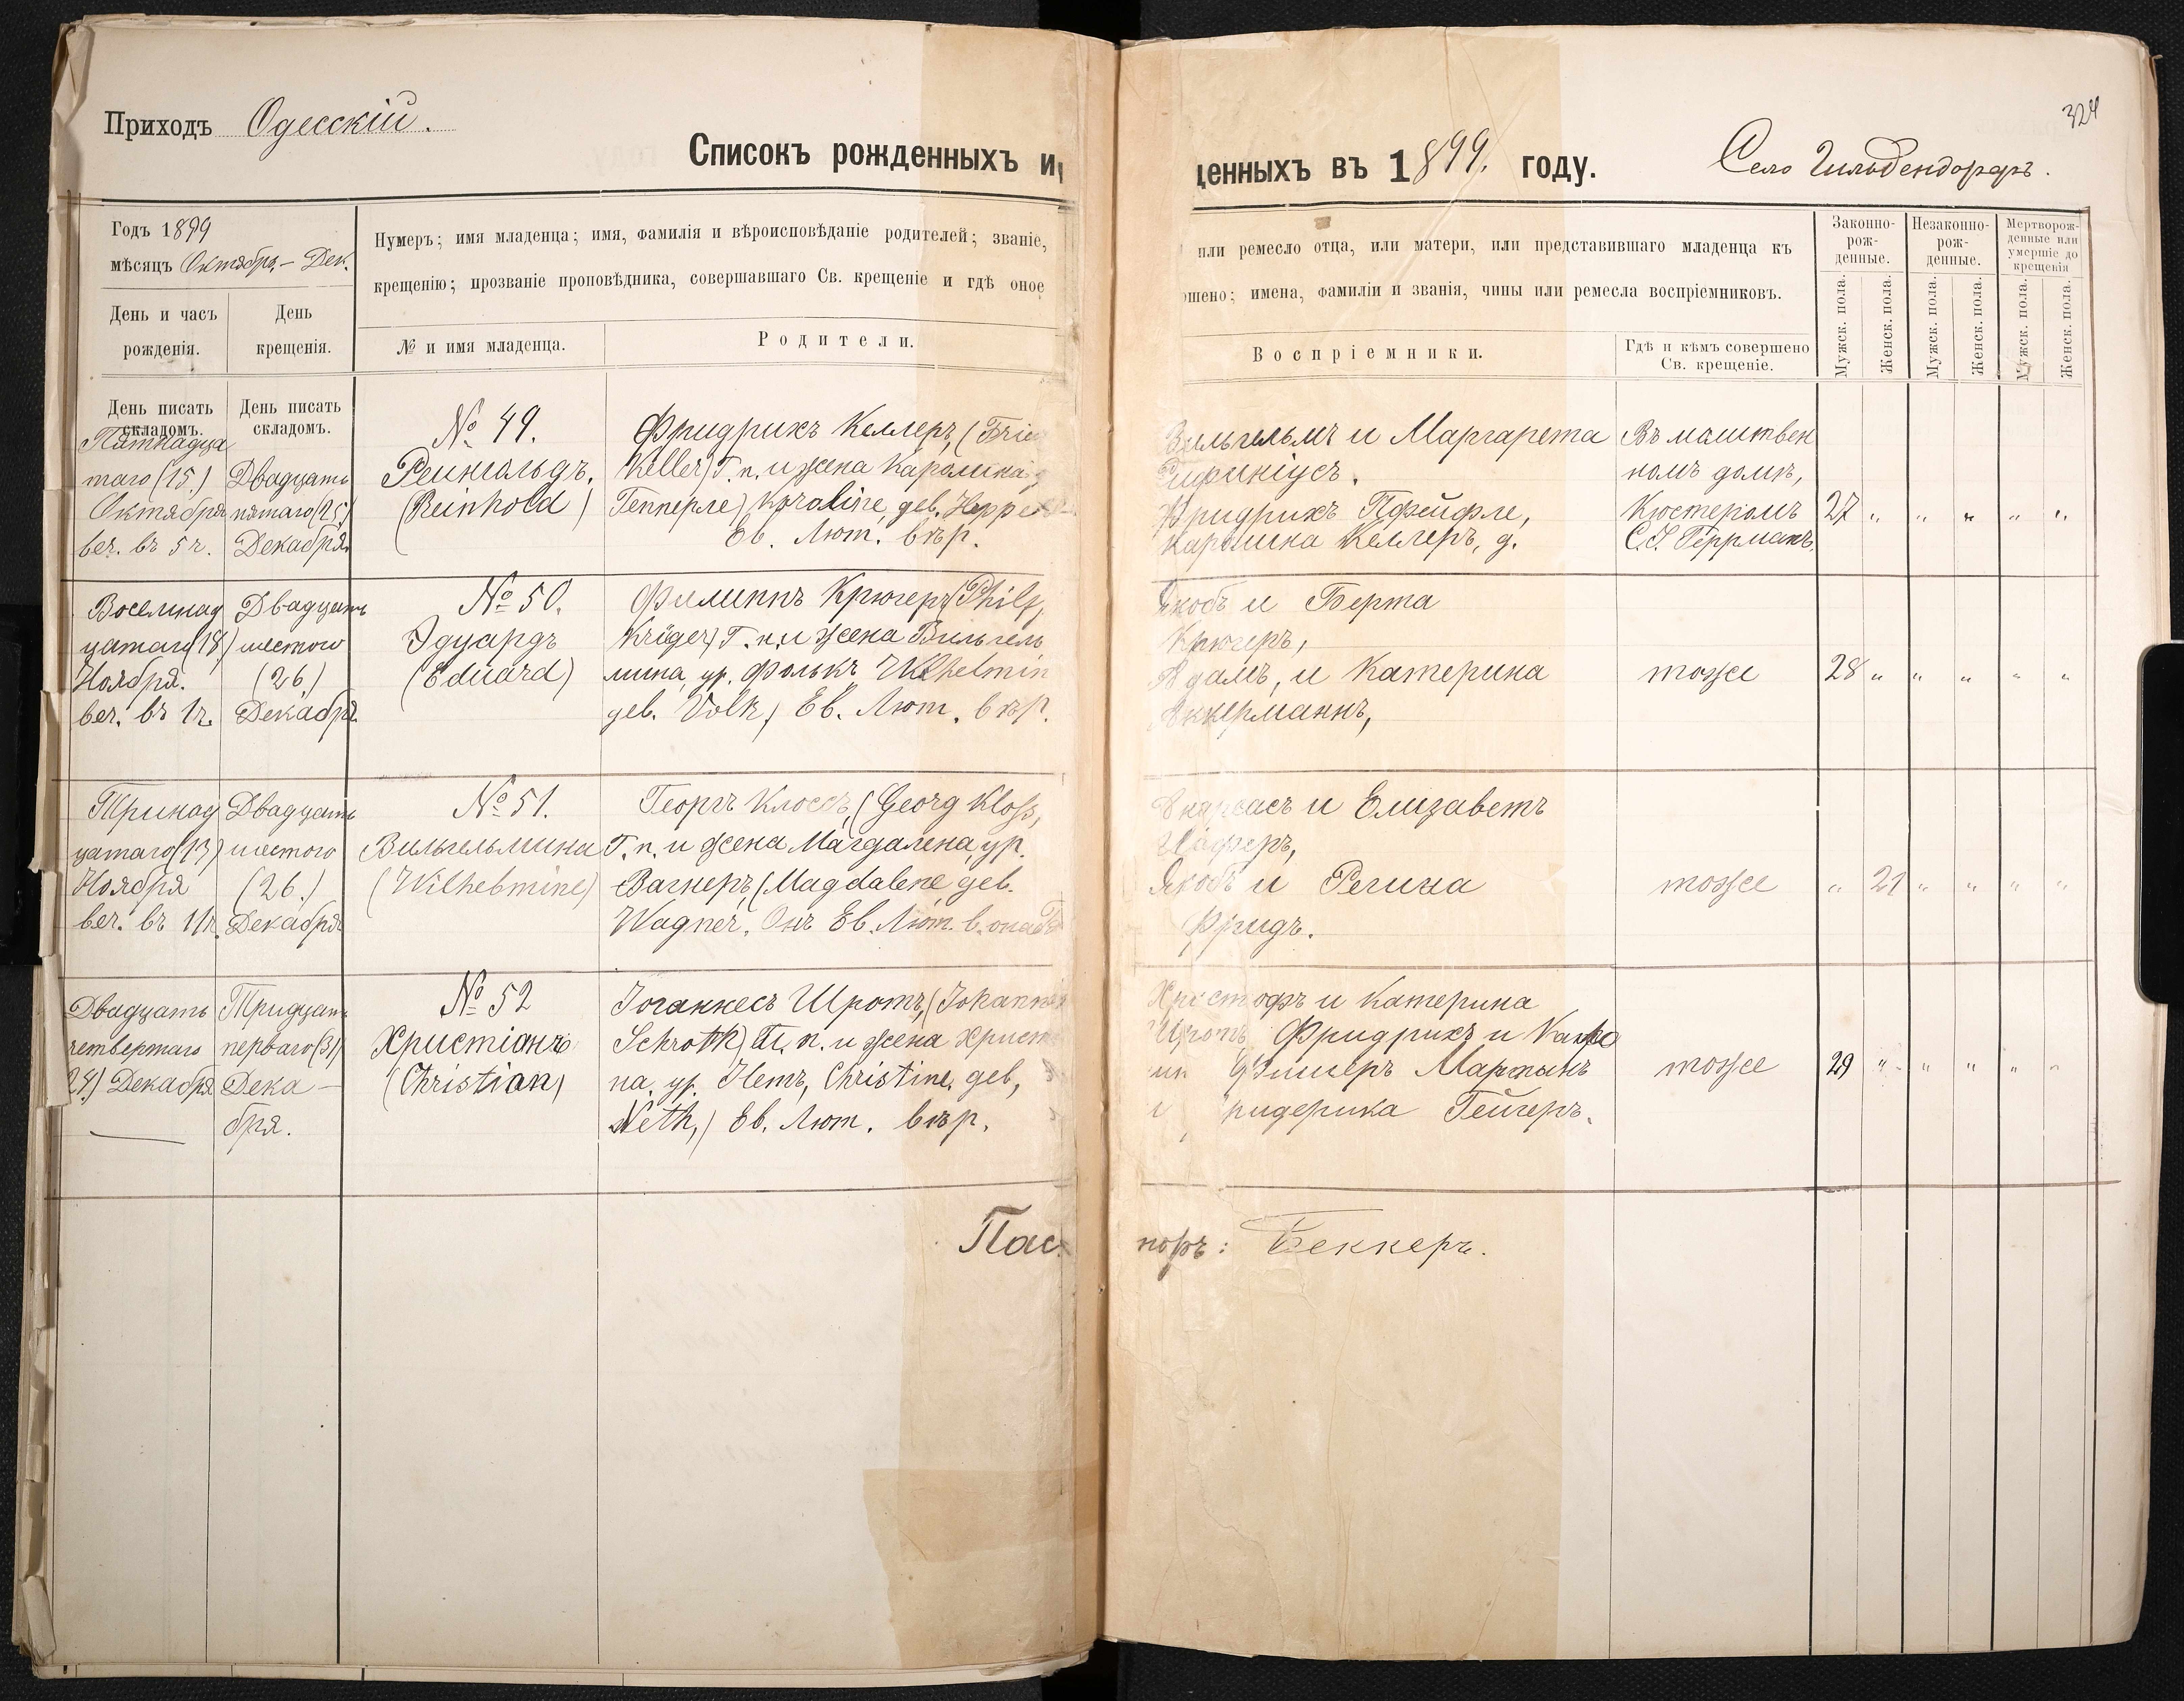 Приходъ Одесскій.
Списокъ рожденныхъ и
Годъ 1899
мѣсяцъ Октябрь – Дек.
Нумеръ; имя младенца; имя, фамилія и вѣроисповѣданіе родителей; званіе,
крещенію; прозваніе проповѣдника, совершавшаго Св. крещеніе и гдѣ оное
День и часъ
рожденія.
День
крещенія.
№ и имя младенца.
Родители.
День писать
складомъ.
День писать
складомъ.
Пятнадца
таго (15.)
Октября
веч. въ 5 ч.
Двадцать
пятаго (25)
Декабря
№ 49.
Рейнгольдъ.
(Reinhold)
Фридрихъ Келлеръ, (Frie
Keller) Г. п. и жена Каролина
Гепперле) Karoline, geb. Heppe
Ев. Лют. вѣр.
Восемнад
цатаго (18)
Ноября.
веч. въ 1 ч.
Двадцать
шестого
(26.)
Декабря.
№ 50.
Эдуардъ
(Eduard)
Филиппъ Крюгеръ (Philip
Krüger) Г. п. и жена Вильгель
мина, ур. Фолькъ, Wilhelmin
geb. Volk,) Ев. Лют. вѣр.
Тринад
цатаго (13)
Ноября
веч. въ 11 ч.
Двадцать
шестого
(26.)
Декабря
№ 51.
Вильгельмина
(Wilhelmine)
Георгъ Клоссъ, (Georg Kloss,
Г. п. и жена Магдалена, ур.
Вагнеръ, (Magdalene, geb.
Wagner. Онъ Ев. Лют. в. она
Двадцать
четвертаго
24) Декабря
Тридцать
перваго (31)
Дека –
бря.
№ 52
Христіанъ
(Christian)
Іоганнесъ Шротъ, (Johannes
Schroth) Г. п. и жена Христи
на, ур. Нетъ, Christine, geb,
Neth,) Ев. Лют. вѣр.
Пас
324
денныхъ въ 1899. году.
Село Гильдендорфъ.
или ремесло отца, или матери, или представившаго младенца къ
ршено; имена, фамиліи и званія, чины или ремесла воспріемниковъ.
Воспріемники.
Гдѣ и кѣмъ совершено
Св. крещеніе.
Законно-
рож-
денные.
Незаконно-
рож-
денные.
Мертворож-
денные или
умершіе до
крещенія
Мужск. пола.
Женск. пола.
Мужск. пола.
Женск. пола.
Мужск. пола.
Женск. пола.
Вильгельмъ и Маргарета
Фридрихъ Пфейфле,
Каролина Келлеръ, д.
Въ молитвен
номъ домѣ,
Кюстеромъ
Геррманъ.
27 " " " " "
Якобъ и Берта
Крюгеръ,
Адамъ, и Катерина
Аккерманнъ,
тоже
28 " " " " "
Андреасъ и Елизаветъ
Якобъ и Регина
Фридъ.
тоже
" 21 " " " "
Христофъ и Катерина
Шротъ Фридрихъ и Каро
лин Мартынъ
ридерика Гейгеръ.
тоже
29 " " " " "
торъ: Беккеръ.